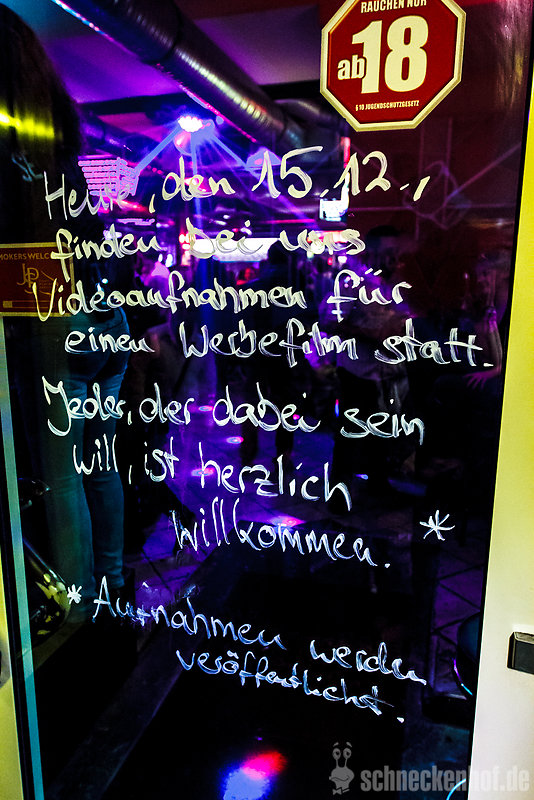 RAUCHEN NUR
ab 18
§ 10 JUGENDSCHUTZGESETZ
Heute, den 15.12.,
finden bei uns
SMOKERS WELCO
Videoaufnahmen für
einen Werbefilm statt.
Jeder, der dabei sein
will, ist herzlich
willkommen. *
* Aufnahmen werden
veröffentlicht.
schneckenhof.de